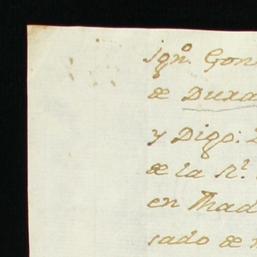 Ign.º Gon
de Dura
y Digo:
de la R.l
en Thad
sado de